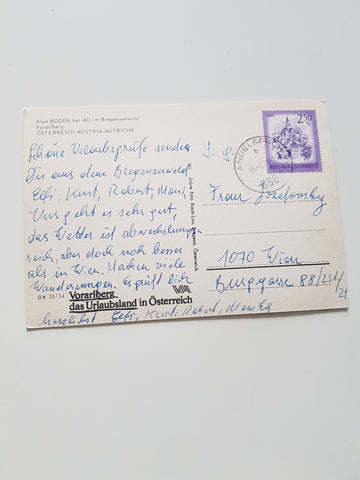 Alpe BODEN bei AU im Bregenzerwald
Vorarlberg
ÖSTERREICH-AUSTRIA-AUTRICHE
Schöne Urlaubsgrüße senden
Dir aus dem Bregenzerwald
Elfi, Kurt, Robert, Moni
Uns geht es sehr gut,
das Wetter ist abwechslungs
reich, aber doch noch besser
als in Wien. Machen viele
Wanderungen. Es grüßt Dich
BM 35734
Vorarlberg
das Urlaubsland in Österreich
herzlichst Elfi, Kurt, Robert, Monika
2.50
REPUBLIK ÖSTERREICH
Frau Josefovsky
1070 Wien
Burggasse 88/